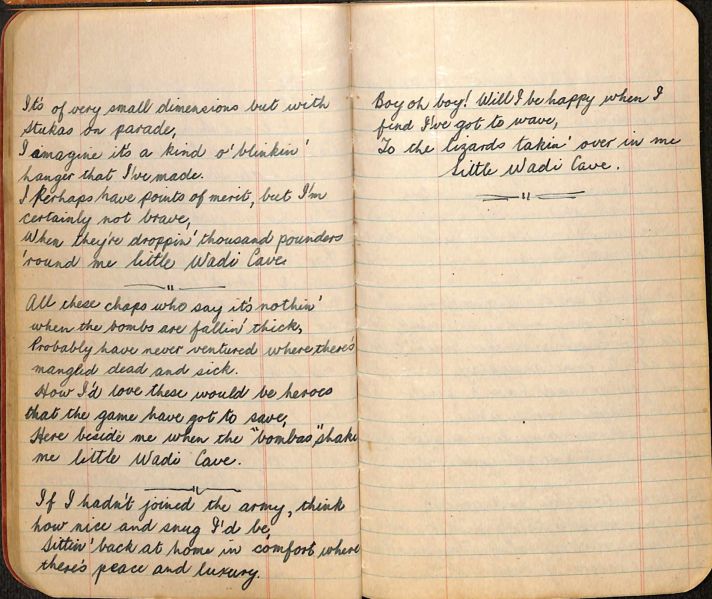 It's of very small dimensions but with
Stukas on parade,
I imagine it's a kind o' blinkin'
hanger that I've made.
I Perhaps have points of merit, but I'm
certainly not brave,
When they're droppin' thousand pounders
'round me little Wadi Cave.
"
All these chaps who say it's nothin'
when the bombs are fallin' thick,
Probably have never ventured where there's
mangled dead and sick.
How I'd love these would be heroes
that the game have got to save,
Here beside me when the "bombas" shake
me little Wadi Cave.
"
If I hadn't joined the army, think
how nice and snug I'd be,
Sittin' back at home in comfort where
there's peace and luxury.
Boy oh boy! Will I be happy when I
find I've got to wave,
To the lizards takin' over in me
Little Wadi Cave.
"